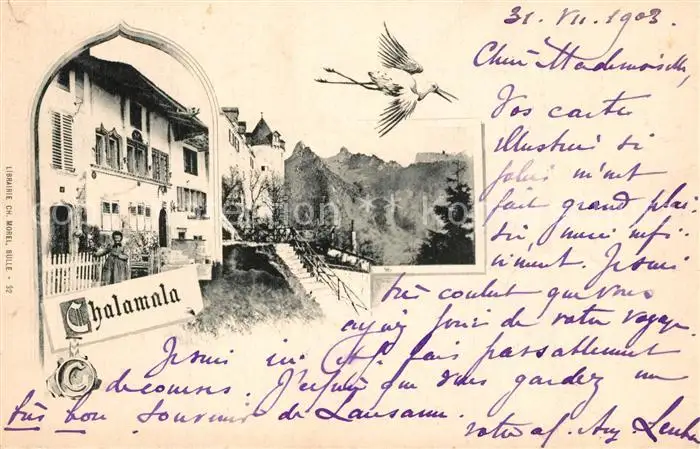 31. VII. 1903.
Chère Mademoiselle,
Vos cartes
illustrées si
jolies m'ont
fait grand plai
sir, merci infi
niment. Je suis
très content que vous
ayez joui de votre voyage.
Je suis ici et fais passablement
de courses. J'espère que vous gardez un
très bon souvenir de Lausanne.
votre af. Aug.
Chalamala
LIBRAIRIE CH. MOREL, BULLE - 92